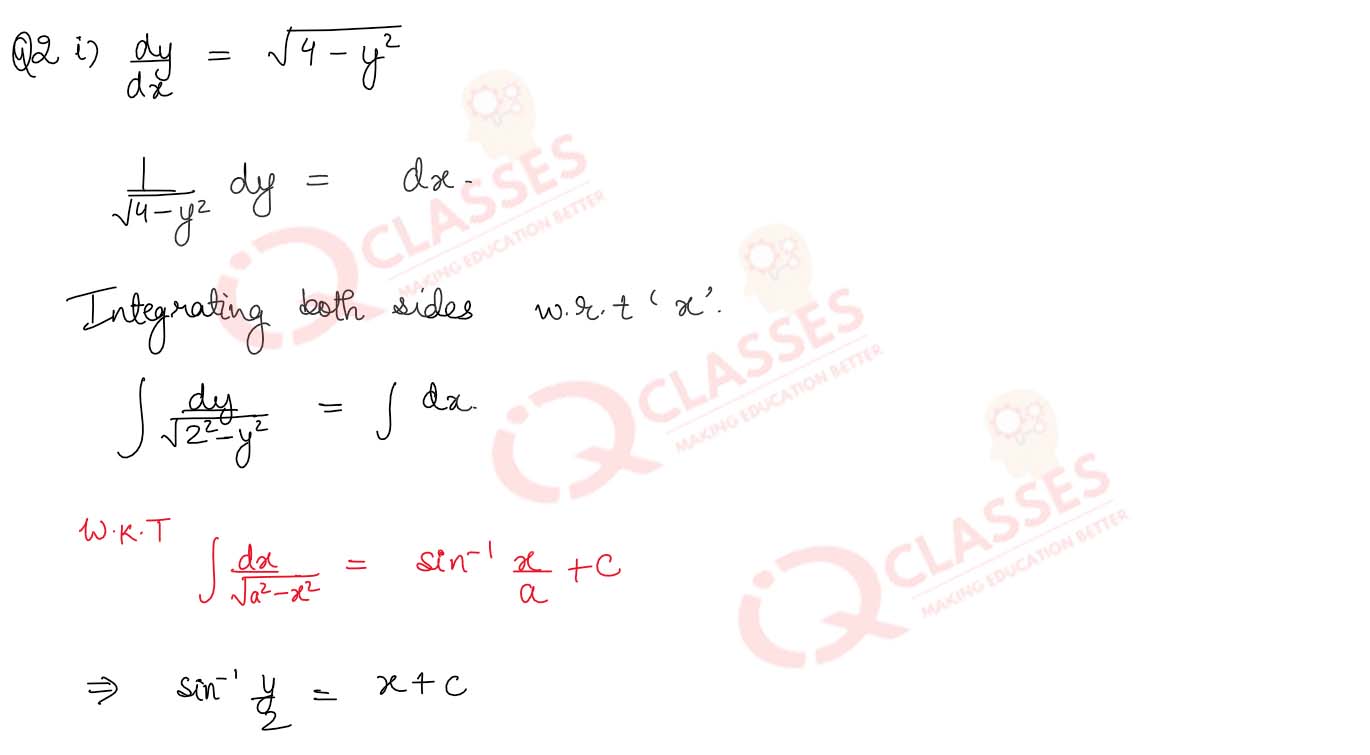 Q2 i) dy/dx = √(4 − y²)
1/√(4−y²) dy = dx.
Integrating both sides w.r.t 'x'.
∫ dy/√(2²−y²) = ∫ dx.
W.K.T
∫ dx/√(a²−x²) = sin⁻¹ x/a + c
⇒ sin⁻¹ y/2 = x + c
iQ CLASSES
MAKING EDUCATION BETTER
iQ CLASSES
MAKING EDUCATION BETTER
iQ CLASSES
MAKING EDUCATION BETTER